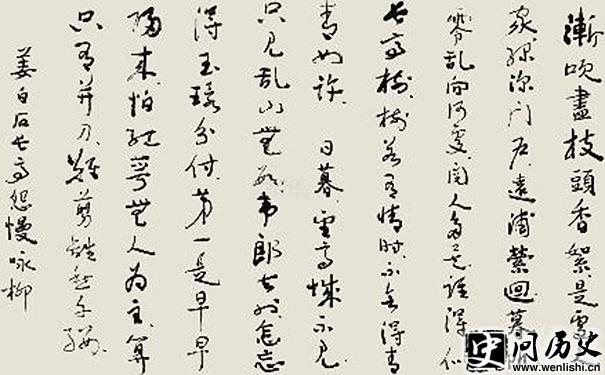 漸吹盡枝頭香絮是處人
家緑深门户遠浦縈迴暮帆
零乱向何處阅人多矣谁得似
长亭樹樹若有情时不會得青
青如许 日暮望高城不見
只见乱山無數韦郎去也怎忘
得玉環分付第一是早早
歸来怕红萼無人为主算
只有并刀難剪離愁千縷
姜白石长亭怨慢咏柳
问历史
www.wenlishi.cn